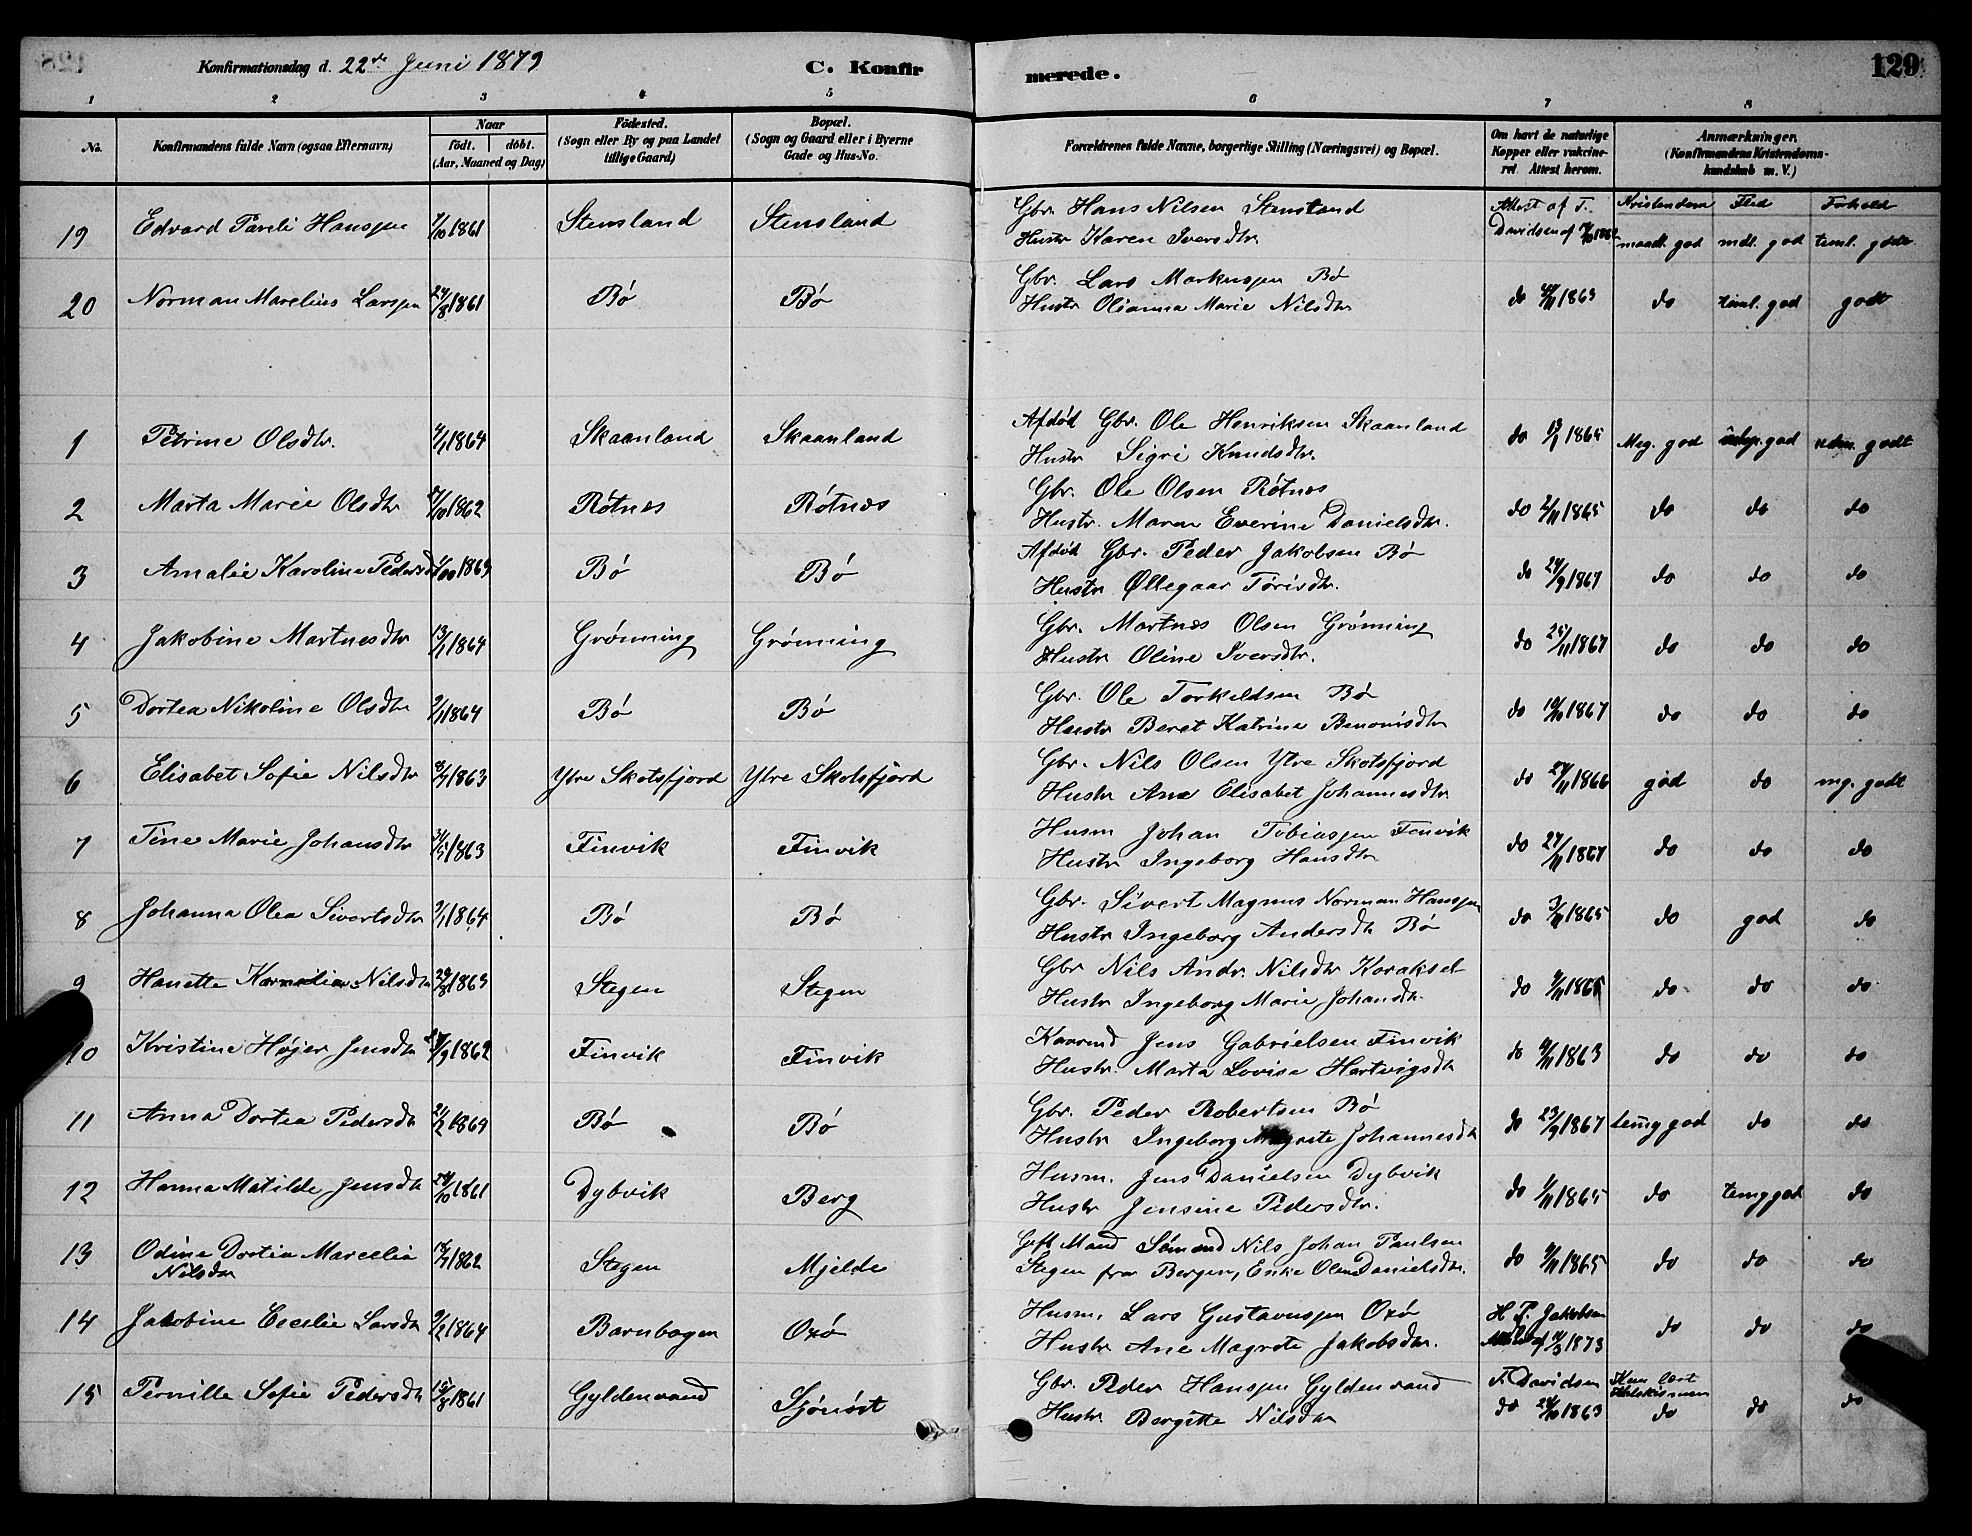 Konfirmationsdag d. 22de Juni 1879
C. Konfir
merede.
129
1 2 3 4 5 6 7 8
No.
Konfirmandens fulde Navn (ogsaa Efternavn)
Naar
födt. döbt.
(Aar, Maaned og Dag)
Födested.
(Sogn eller By og paa Landet
tillige Gaard)
Bopæl.
(Sogn og Gaard eller i Byerne
Gade og Hus-No.
Forældrenes fulde Navne, borgerlige Stilling (Næringsvei) og Bopæl.
Om havt de naturlige
Kopper eller vakcine-
ret. Attest herom.
Anmærkninger.
(Konfirmandens Kristendoms-
kundskab m. V.)
Kristendom Flid Forhold
19 Edvard Pareli Hanssen 7/10 1861 Stensland Stensland Gbr. Hans Nilsen Stensland Attest af F.
Hustr Karen Iversdtr. Davidsen af 1862 maadl. god mdl. god teml. godt
20 Norman Marelius Larssen 24/8 1861 Bö Bö Gbr. Lars Markussen Bö
Hustr Olianna Marie Nilsdtr do 1863 do teml. god godt
1 Petrine Olsdtr. 4/1 1864 Skaanland Skaanland Afdöd Gbr. Ole Henriksen Skaanland
Hustr Sigri Knudsdtr. do 13/1 1865 Meg. god god godt
2 Marta Marie Olsdtr 1862 Rötnes Rötnes Gbr. Ole Olsen Rötnes
Hustr. Maren Everine Danielsdtr. do 2/11 1865 do do do
3 Amalie Karoline Pedersd 1863 Bö Bö Afdöd Gbr. Peder Jakobsen Bö
Hustr Øllegaar Torisdtr. do 24/9 1867 do do do
4 Jakobine Martnesdtr 13/1 1864 Grönning Grönning Gbr. Martnes Olsen Grönning
Hustr Oline Iversdtr. do 25/11 1867 do do do
5 Dortea Nikoline Olsdtr 9/1 1864 Bö Bö Gbr. Ole Torkeldsen Bö
Hustr Beret Katrine Benonisdtr do 10/10 1867 do do do
6 Elisabet Sofie Nilsdtr 8/7 1863 Ytre Skotsfjord Ytre Skotsfjord Gbr. Nils Olsen Ytre Skotsfjord
Hustr Ane Elisabet Johannesdtr do 1866 god do mg. godt
7 Tine Marie Johansdtr 3/5 1863 Finvik Finvik Husm Johan Tobiassen Finvik
Hustr Ingeborg Hansdtr do 27/11 1867 do do do
8 Johanna Olea Sivertsdtr 9/1 1864 Bö Bö Gbr. Sivert Magnus Norman Hanssen
Hustr Ingeborg Andersdtr Bö do 3/11 1865 do god do
9 Hanette Kornelia Nilsdtr 29/8 1863 Stegen Stegen Gbr Nils Andr. Nilsdtr Koraksel
Hustr Ingeborg Marie Johandtr. do 9/11 1865 do do do
10 Kristine Höjer Jensdtr 1862 Finvik Finvik Jens Gabrielsen Finvik
Hustr. Marta Lovise Hartvigsdtr do 1863 do do do
11 Anna Dortea Pedersdtr 21/2 1864 Bö Bö Gbr. Peder Robertsen Bö
Hustr Ingeborg Magrete Johannesdtr do 23/9 1867 temg god do do
12 Hanna Matilde Jensdtr 24/10 1861 Dybvik Berg Husm. Jens Danielsen Dybvik
Hustr Jensine Pedersdtr. do 1/11 1865 do temg god do
13 Odine Dortia Marcelia 1862 Stegen Mjelde Gift Mand Sömand Nils Johan Paulsen
Nilsdtr Stegen fra Bergen, Enke Oline Danielsdtr. do 9/11 1865 do do do
14 Jakobine Cecelie Larsdtr 9/2 1864 Barnhagen Oxö Husm. Lars Gustavussen Oxö H P. Jakobsen
Hustr Ane Magrete Jakobsdtr. Attest af 1873 do do do
15 Pernille Sofie Pedersdtr 15/8 1861 Gyldenvand Gbr. Peder Hanssen Gyldenvand F. Davidsen Kun læst
Hustr. Bergitte Nilsdtr do 24/10 1863 do do do